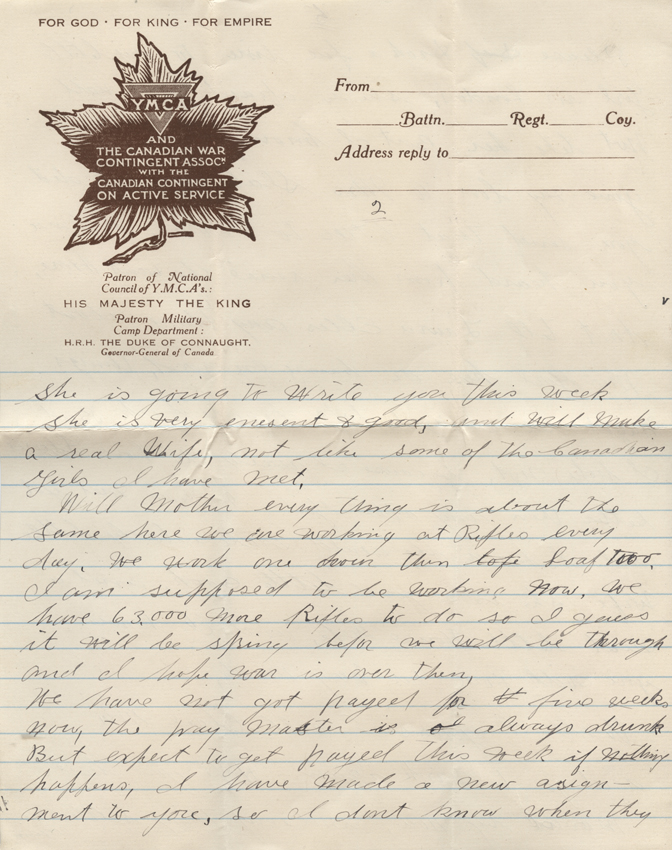 FOR GOD · FOR KING · FOR EMPIRE
YMCA
AND
THE CANADIAN WAR
CONTINGENT ASSOCN
WITH THE
CANADIAN CONTINGENT
ON ACTIVE SERVICE
Patron of National
Council of Y.M.C.A's.:
HIS MAJESTY THE KING
Patron Military
Camp Department:
H.R.H. THE DUKE OF CONNAUGHT.
Governor-General of Canada
From
Battn. Regt. Coy.
Address reply to
2
she is going to write you this week
she is very enesent & good, and will make
a real Wife, not like some of the Canadian
Girls I have met,
Will Mother every thing is about the
same here we are working at Rifles every
day. We work one hour then loaf two.
I am supposed to be working now, we
have 63,000 more Rifles to do so I guess
it will be spring befor we will be through
and I hope war is over then,
We have not got payed for five weeks
now, the pay master is always drunk
But expect to get payed this week if nothing
happens, I have made a new asign-
ment to you, so I dont know when they